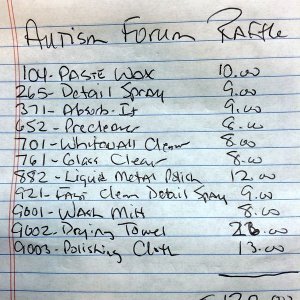 Autism Forum Raffle
104- Paste Wax 10.00
265- Detail Spray 9.00
371- Absorb-It 9.00
652- Precleaner 8.00
701- Whitewall Clear 8.00
761- Glass Clear 8.00
882- Liquid Metal Polish 12.00
921- Fast Clean Detail Spray 9.00
9001- Wash Mitt 8.00
9002- Drying Towel
9003- Polishing Cloth 13.00